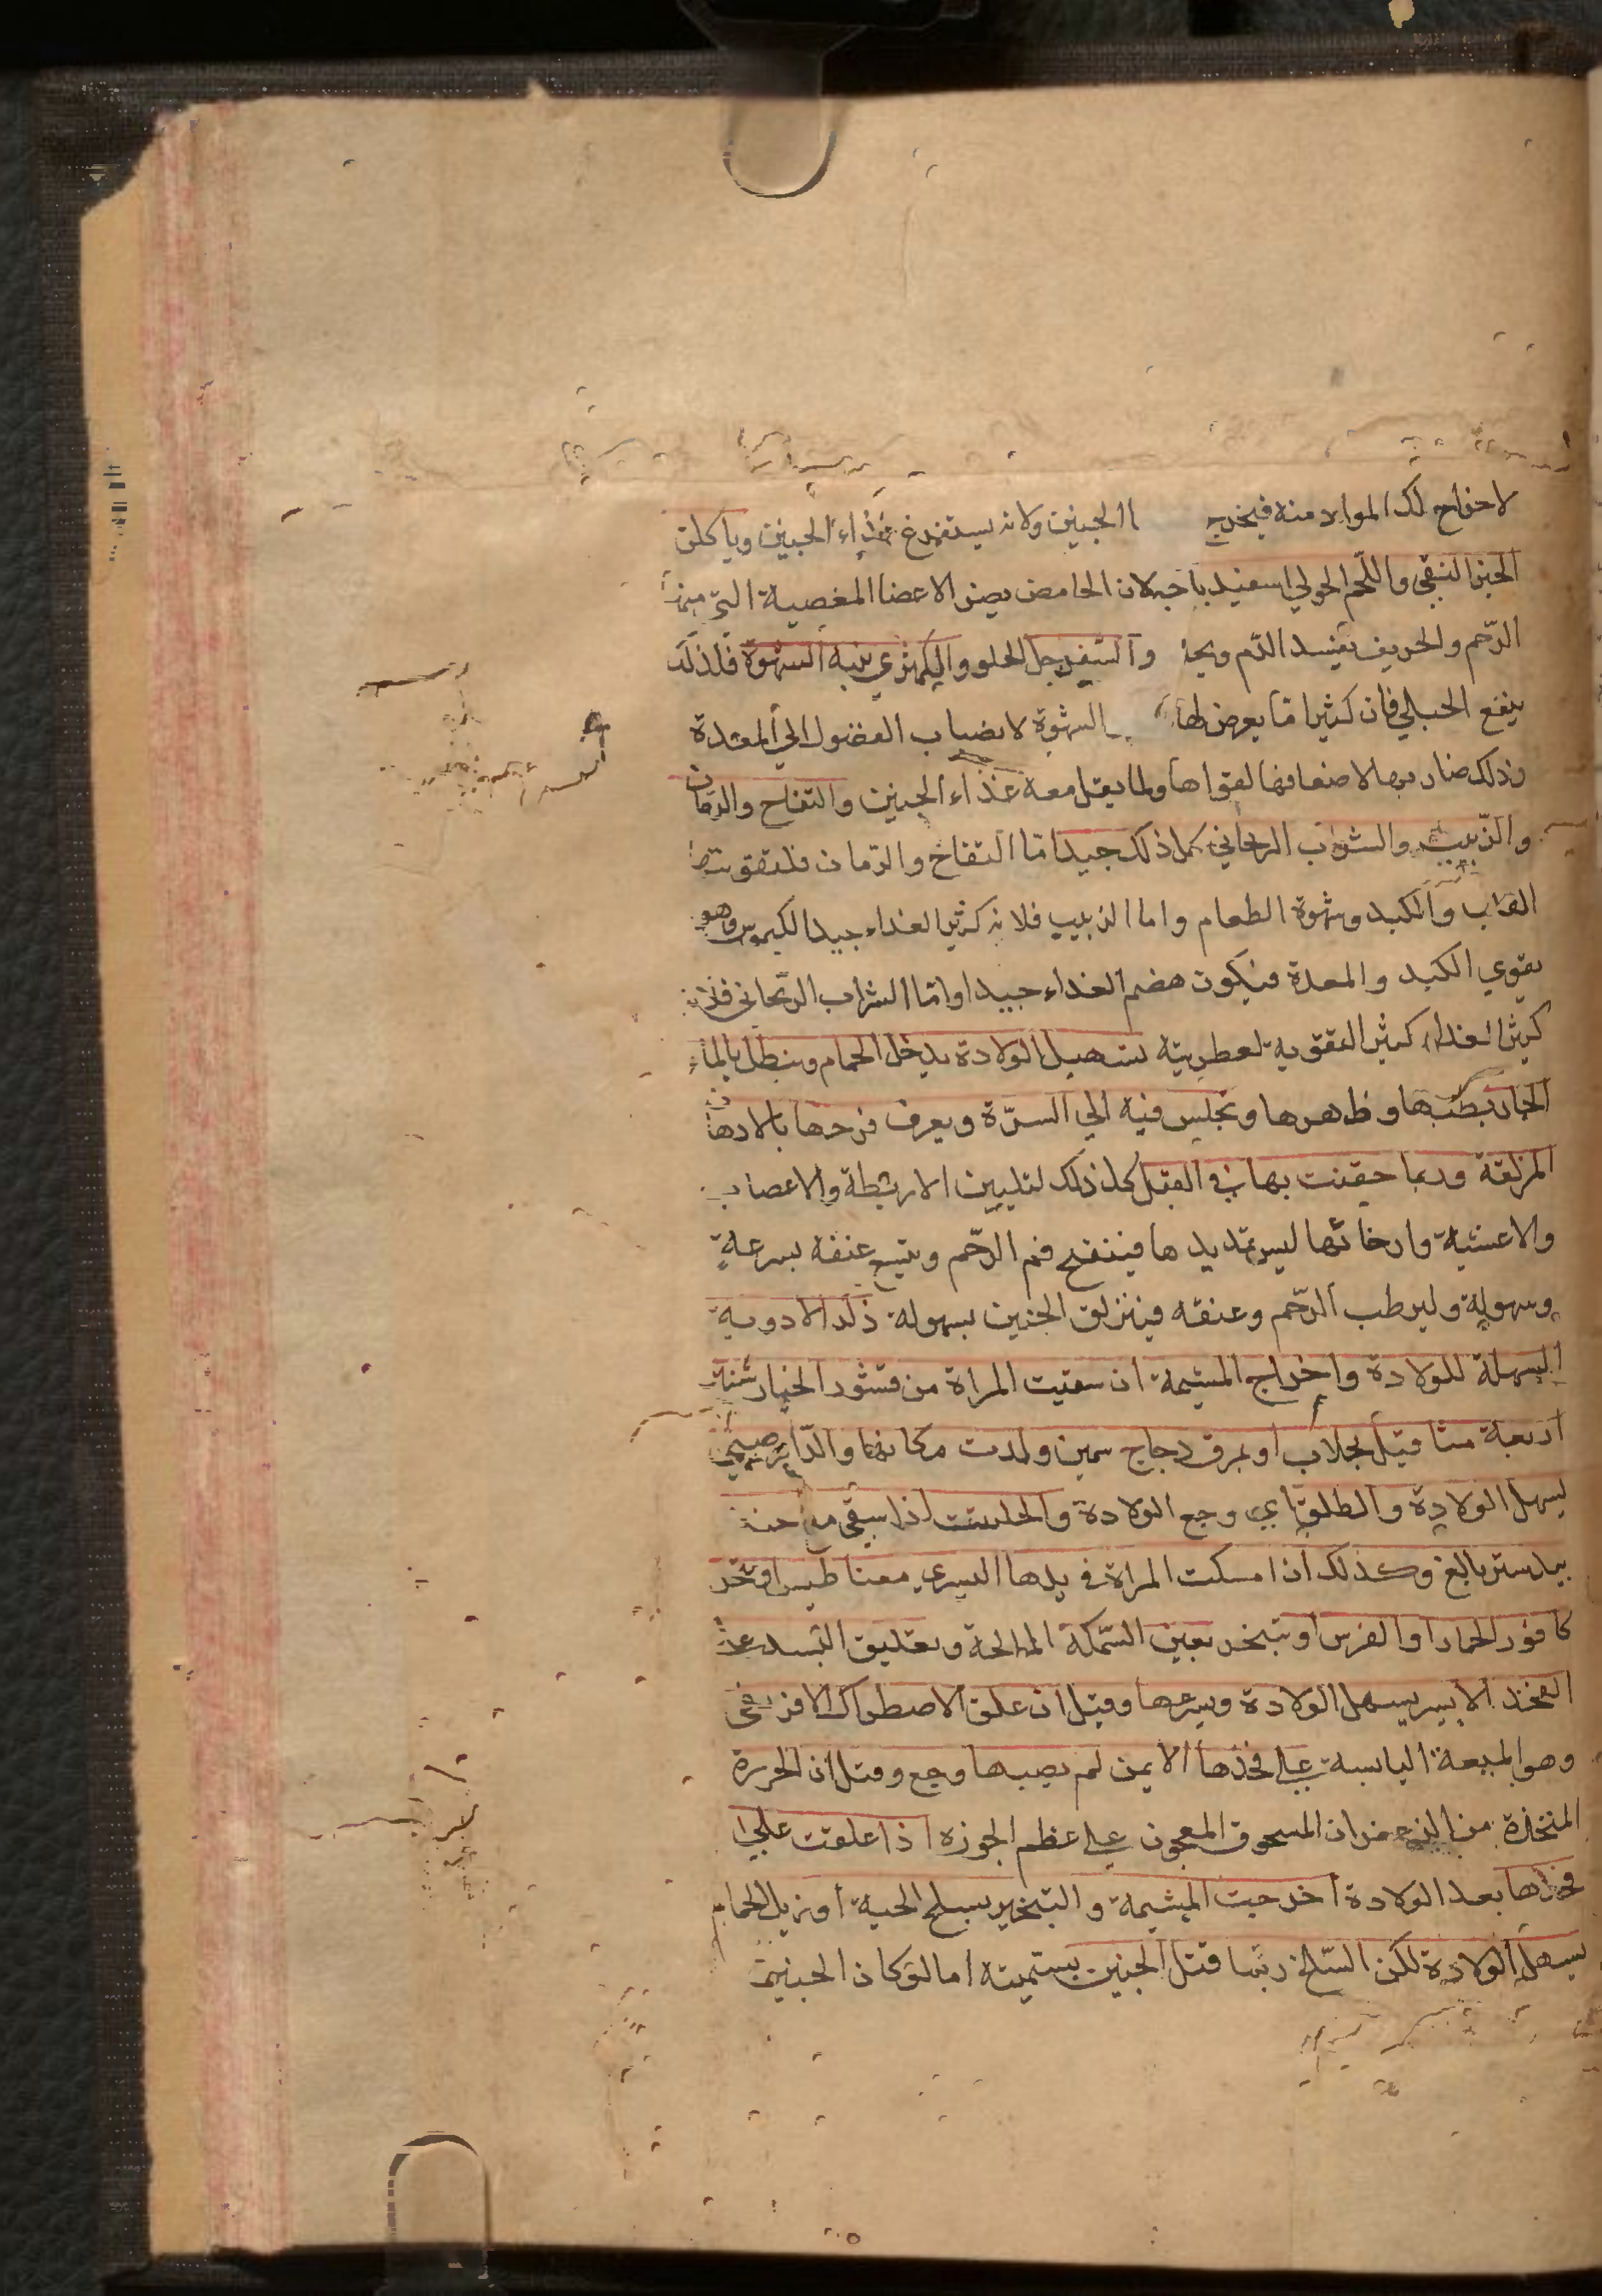 لاخراج لك المواد منه فيخرج االجنين ولانه يستفرغ غذاء الجنين وياكلن
الخبز النقي واللحم الحولي اسفيدباجه لان الحامض يضر الاعضا العصبية التي منها
الرّحم والحريف يفسد الدّم والسّفرجل الحلو والكمثري ينبه الشهوة فلذلك
ينفع الحبالي فان كثيرا مّا يعرض لها الشهوة لانصباب الفضول الي المعدة
وذلك ضار بها لاضعافها لقواها ولما يقل معه غذاء الجنين والتفاح والرّمان
والزّبيب والشراب الريحاني كل ذلك جيد امّا التفاح والرّمان فلتقويتها
القلب والكبد وشهوة الطعام واما الزبيب فلانه كثير الغداء جيد الكيموس وهو
يقوي الكبد والمعدة فيكون هضم الغداء جيدا وامّا الشراب الرّيحاني فلانه
كثير الغداء كثير التقوية لعطريته تسهيل الولادة يدخل الحمام وينطل بالماء
الحار بطنها وظهرها وتجلس فيه الي السرّة ويعرق فرجها بالادهان
المزلقة وربما حقنت بها في القبل كل ذلك لتليين الاربطة والاعصاب
والاغشية وارخائها ليسر تمديدها فينفتح فم الرّحم ويتسع عنقه بسرعةٍ
وسهولة وليرطب الرّحم وعنقه فينزلق الجنين بسهولة ذلك الادوية
المسهلة للولادة واخراج المشيمة ان سقيت المراة من قشور الخيار شنبر
اربعة مثاقيل بجلاب او بمرق دجاج سمين ولدت مكانها والدّارصيني
يسهل الولادة والطلق اي وجع الولادة والحلتيت اذا سقي مع جند
بيدستر بالغ وكذلك اذا مسكت المراة في يدها اليسري مغناطيس او تبخر
كافور الحمار او الفرس او تبخر بعين السّمكة المالحة وتعليق البسد علي
الفخذ الايسر يسهل الولادة ويسرعها وقيل ان علق الاصطرك الافرنجي
وهو الميعة اليابسة علي فخذها الايمن لم يصبها وجع وقيل ان الخرزة
المتخذة من الزعفران المسحوق المعجون علي عظم الجوزه اذا علقت علي
فخذها بعد الولادة اخرجت المشيمة والتبخير بسلخ الحية او زبل الحمام
يسهل الولادة لكن السّلخ ربّما قتل الجنين بسميته اما لو كان الجنين